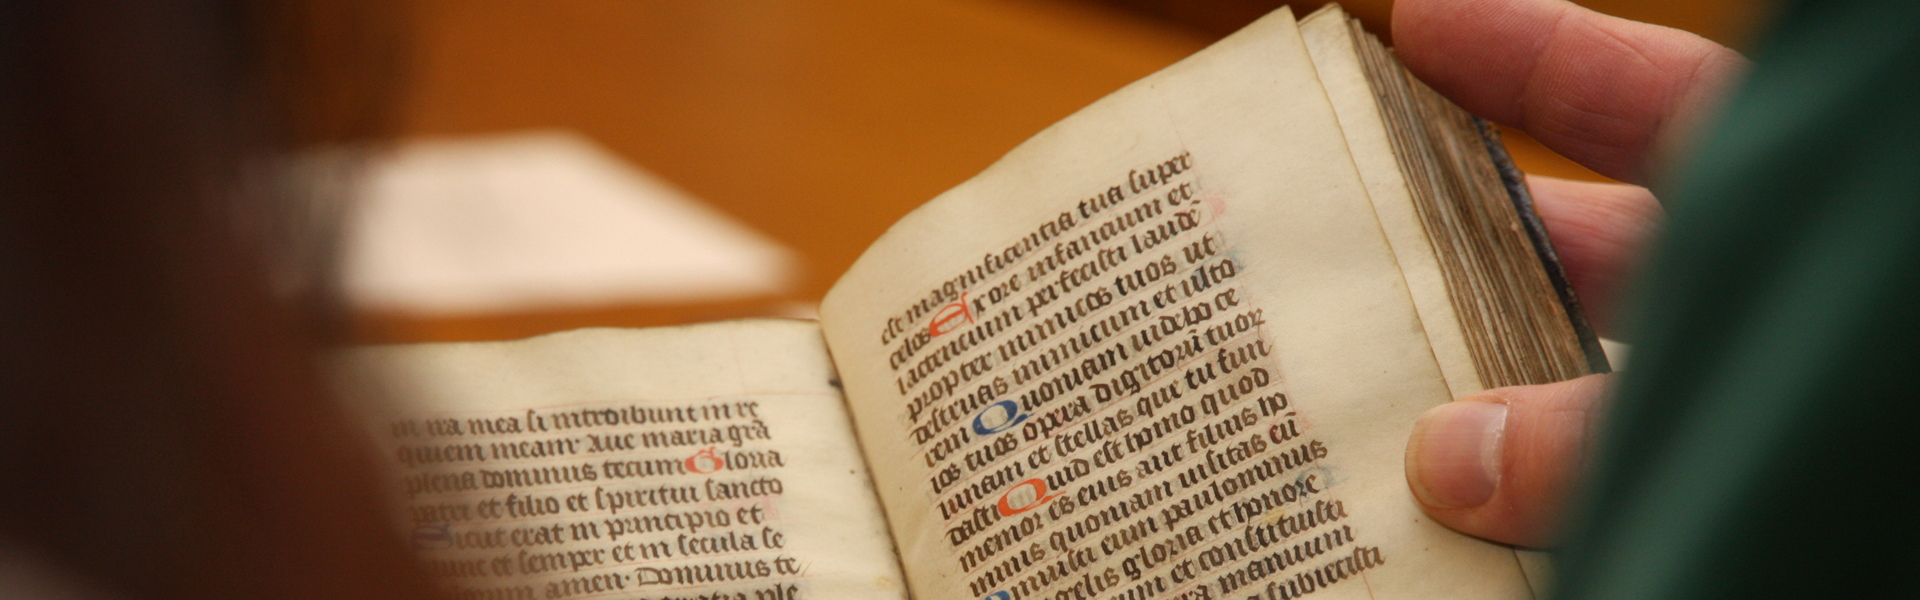 in ira mea si introibunt in re
quiem meam· Aue maria grã
plena dominus tecum Gloria
patri et filio et spiritui sancto
Sicut erat in principio et
nunc et semper et in secula se
amen· Dominus te
est magnificentia tua super
celos Ex ore infancium et
lactencium perfecisti laudẽ
propter inimicos tuos ut
destruas inimicum et ulto
rem Quoniam uidebo ce
los tuos opera digitorũ tuor
lunam et stellas que tu fun
dasti Quid est homo quod
memor es eius aut filius ho
minis quoniam uisitas eũ
Minuisti eum paulominus
angelis gloria et honore
eum et constituisti
opera manuum
subiecisti